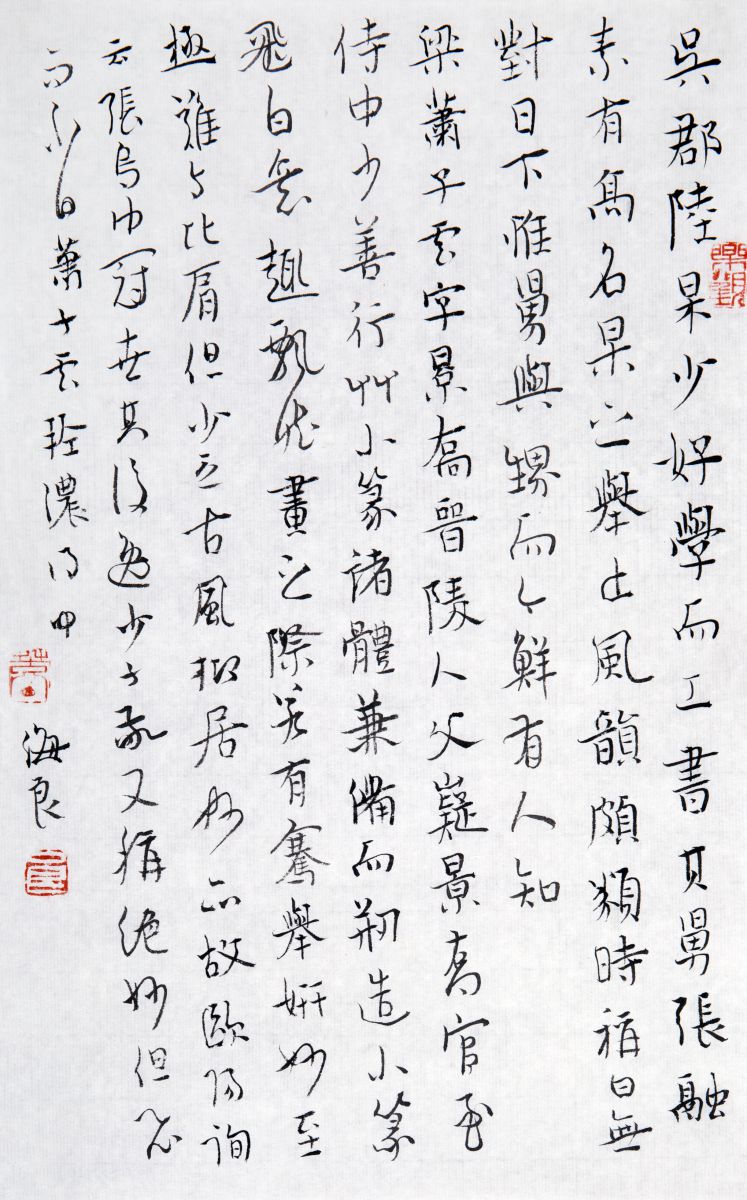 吳郡陸杲少好學而工書其舅張融
素有高名杲之舉止風韻頗類時稱曰無
對日下惟舅與甥而今鮮有人知
梁蕭子雲字景喬晉陵人父嶷景喬官至
侍中少善行草小篆諸體兼備而創造小篆
飛白意趣飄然畫之際若有騫舉妍妙至
極難與比肩但少乏古風抑居妙品故歐陽詢
云張烏巾冠世其後逸少子敬又稱絕妙但
而不白蕭子雲輕濃得中
海良